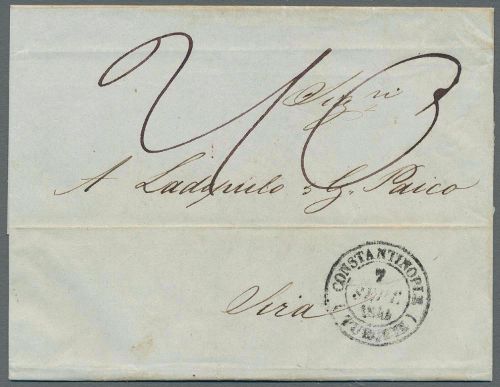 Sig.ri
A Ladopulo & G. Paico
Siria
CONSTANTINOPLE
7
SEPT.
(TURQUIE)